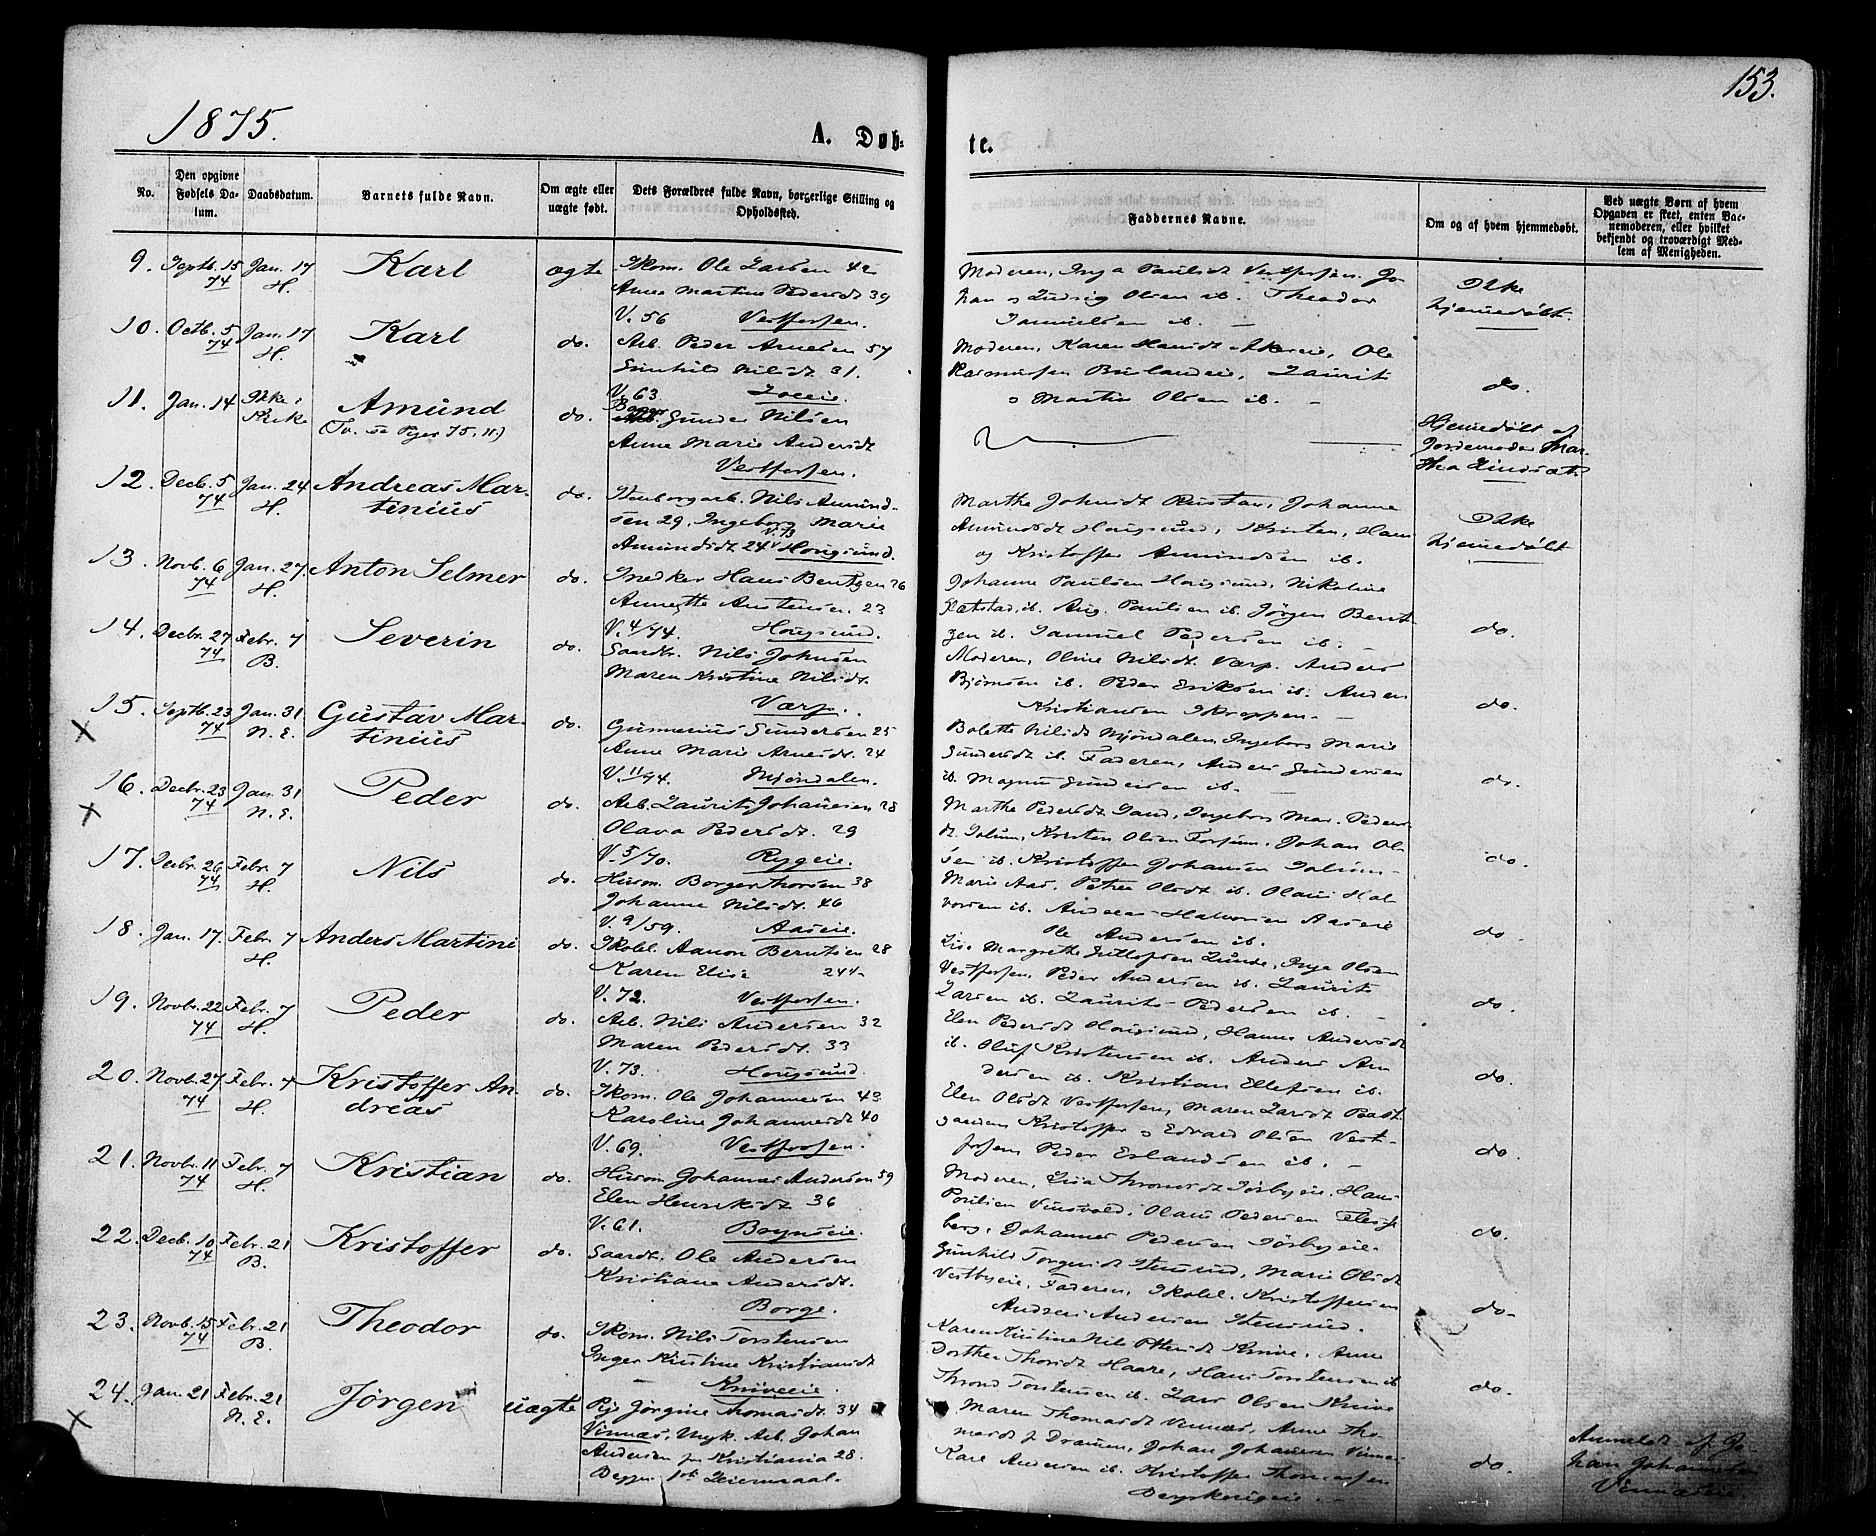 1875.
A. Døb-
te.
153.
No.
Den opgivne Fødsels Datum.
Daabsdatum.
Barnets fulde Navn.
Om ægte eller uægte født.
Dets Forældres fulde Navn, borgerlige Stilling og Opholdssted.
Faddernes Navne.
Om og af hvem hjemmedøbt.
Ved uægte Børn af hvem Opgaven er skeet, enten Barnemoderen, eller hvilket bekjendt og troværdigt Medlem af Menigheden.
9. Septb. 15 74 Jan. 17 H. Karl ægte Skom. Ole Larsen 42
Anne Martine Pedersdt 39
V. 56 Vestfossen.
Moderen, Inga Paulsdt Vestfossen. Jo-
han o Ludvig Olsen ib. Theodor
Samuelsen ib. –
Ikke
hjemmedøbt.
10. Octb. 5 74 Jan. 17 H. Karl do. Arb. Peder Arnesen 57
Gunhild Nilsdt 31.
V. 63
Moderen, Karen Hansdt Ole
Rasmussen Laurits
o Martin Olsen ib. –
do.
11. Jan. 14 Ikke i Kirke Amund do. Gunder Nilsen
Anne Marie Andersdt
Vestfossen.
Hjemmedøbt af
Jordemoder Mar-
tha
12. Decb. 5 74 Jan. 24 H. Andreas Mar-
tinius do. Nils Amund-
sen 29, Ingeborg Marie
Amundsdt 24 V. 73 Hougsund.
Marthe Johnsdt Johanne
Amundsdt Hougsund, Kristen, Hans
og Kristoffer Amundsen ib.
Ikke
hjemmedøbt
13. Novb. 6 74 Jan. 27. H. Anton Selmer do. Snedker Hans Bentzen 26
Annette Austensen. 23
V. 4/74. Hougsund.
Johanne Paulsen Hougsund, Nikoline
ib. Aug. Paulsen ib. Jørgen Bent-
zen ib. Samuel Pedersen ib. –
do.
14. Decbr. 27 74 Febr. 7 B. Severin do. Gaardbr. Nils Johnsen
Maren Kristine Nilsdt.
Varp.
Moderen, Oline Nilsdt Varp. Anders
Bjørnsen ib. Peder Eriksen ib. Anders
Kristiansen –
do.
15. Septb. 23 74 Jan. 31 N. E. Gustav Mar-
tinius do. Gunnerius Gundersen 25
Anne Marie Arnesdt. 24
V. 11/74. Mjøndalen.
Bolette Nilsdt Mjøndalen, Ingeborg Marie
Gundersdt ib. Faderen, Anders Gundersen
ib. Magnus Gundersen ib. –
do.
16. Decbr. 23 74 Jan. 31 N. E. Peder do. Arb. Laurits Johansen 28
Olava Pedersdt. 29
V. 5/70. Rygeie.
Marthe Pedersdt Ingeborg Mar. Peders-
dt Solum, Kristen Olsen Johan Ol-
sen ib. Kristoffer Johansen Solum –
do.
17. Decbr. 26 74 Febr. 7 H. Nils do. Husm. Borger Thorsen 38
Johanne Nilsdt. 46
V. 9/59. Aaseie.
Maria Aas, Petrea Olsdt ib. Olaus Hal-
vorsen ib. Andreas Halvorsen Aaseie
Ole Andersen ib.
do.
18. Jan. 17. Febr. 7 H. Anders Martini do. Skolel. Aanon Berntsen 28
Karen Elise 24
V. 72. Vestfossen.
Lise Margrethe Lunde, Inga Olsen
Vestfossen, Peder Andersen ib. Laurits
Larsen ib. Laurits Pedersen ib. –
do.
19. Novbr. 22 74 Febr. 7 H. Peder do. Arb. Nils Andersen 32
Maren Pedersdt. 33
V. 73. Hougsund.
Elen Pedersdt Hougsund, Hanne Andersdt
ib. Oluf Kristensen ib. Anders An-
dersen ib. Kristian Ellefsen ib.
do.
20. Novb. 27 74 Febr. 7 H. Kristoffer An-
dreas do. Skom. Ole Johannesen 43
Karoline Johannesdt 40
V. 69. Vestfossen.
Elen Olsdt Vestfossen, Maren Larsdt
Kristoffer o Edvard Olsen Vest-
fossen Peder Erlandsen ib. –
do.
21. Novbr. 11 74 Febr. 7 H. Kristian do. Husm Johannes Andersen 59
Elen Henriksdt 36
V. 61. Brynseie.
Moderen, Lisa Thronsdt Hans
Poulsen Olaus Pedersen
berg, Johannes Pedersen
do.
22. Decb. 10 74 Febr. 21 B. Kristoffer do. Gaardbr. Ole Andersen
Kristiane Andersdt.
Borge.
Gunhild Torgersdt Stensrud, Marie Olsdt
Vestbyeie, Faderen, Skolel. Kristoffersen
Andreas Andersen Stensrud.
do.
23. Novb. 15 74 Febr. 21 B. Theodor do. Skom. Nils Torstensen
Inger Kirstine Kristiansdt
Kniveeie.
Karen Kirstine Nils Knive, Anne
Dorthea Thorsdt Haare, Hans Torstensen ib
Thrond Torstensen ib. Lars Olsen Knive
do.
24. Jan. 21 Febr. 21 N. E. Jørgen uægte Pige Jørgine Thomasdt. 34
Vinnæs, Ungk. Arb. Johan
Andersen fra Kristiania 28.
Begges 1ste Leiermaal.
Maren Thomasdt Vinnæs, Anne Tho-
masdt f. Drammen, Johan Johannesen
Karl Andersen ib. Kristoffer Thomassen
do.
Anmeldt af Jo-
han Johannesen